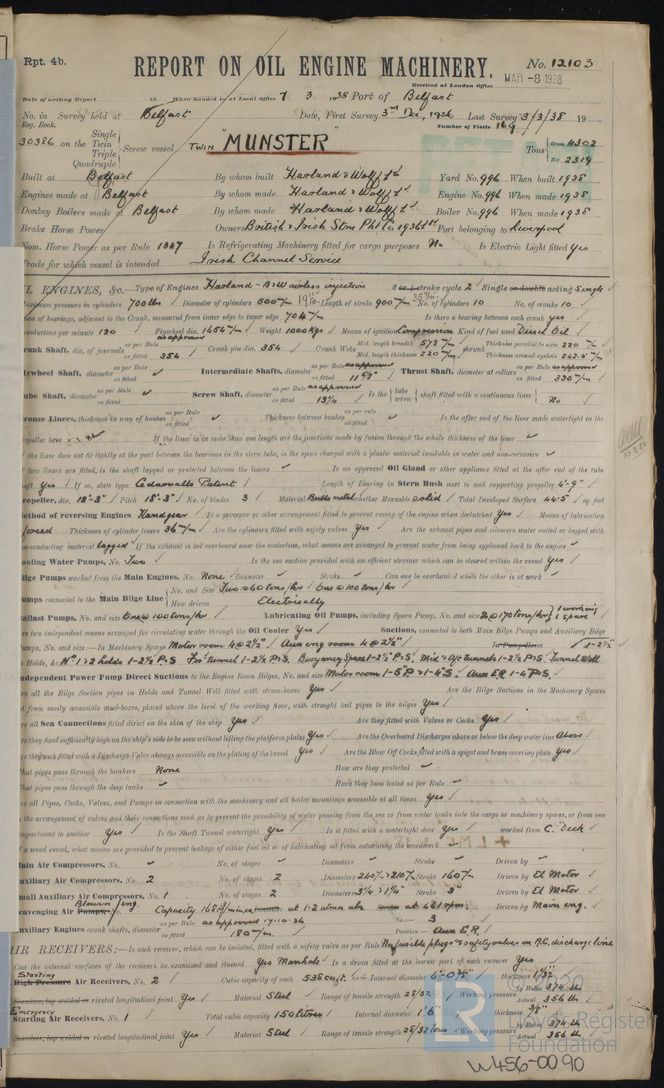 Rpt. 4b.
REPORT ON OIL ENGINE MACHINERY.
No. 12103
Received at London Office
MAR -8 1938
Date of writing Report 19 When handed in at Local Office 7. 3. 1938 Port of Belfast
No. in Survey held at Belfast Date, First Survey 3rd Dec, 1936 Last Survey 3/3/38 19
Reg. Book. Number of Visits 169
30386 on the Single Twin Triple Quadruple Screw vessel TWIN "MUNSTER" Tons Gross 4302 Net 2319
Built at Belfast By whom built Harland & Wolff Ltd Yard No. 996 When built 1938
Engines made at Belfast By whom made Harland & Wolff Ltd Engine No. 996 When made 1938
Donkey Boilers made at Belfast By whom made Harland & Wolff Ltd Boiler No. 996 When made 1938
Brake Horse Power Owners British & Irish Stm Pkt Co 1936 Ltd Port belonging to Liverpool
Nom. Horse Power as per Rule 1367 Is Refrigerating Machinery fitted for cargo purposes No Is Electric Light fitted Yes
Trade for which vessel is intended Irish Channel Service
OIL ENGINES, &c. Type of Engines Harland - B&W airless injection 2 or 4 stroke cycle 2 Single or double acting Single
Maximum pressure in cylinders 700 lbs Diameter of cylinders 500 m/m Length of stroke 900 m/m No. of cylinders 10 No. of cranks 10
Span of bearings, adjacent to the Crank, measured from inner edge to inner edge 704 m/m Is there a bearing between each crank yes
Revolutions per minute 120 Flywheel dia. 1654 m/m Weight 1000 kgs Means of ignition Compression Kind of fuel used Diesel Oil
Crank Shaft, dia. of journals as per Rule as approved as fitted 354 Crank pin dia. 354 Crank Webs Mid. length breadth 572 m/m Mid. length thickness 220 m/m shrunk Thickness parallel to axis 220 m/m Thickness around eyehole 242.5 m/m
Flywheel Shaft, diameter as per Rule as fitted Intermediate Shafts, diameter as per Rule as approved as fitted 11 5/8" Thrust Shaft, diameter at collars as per Rule as approved as fitted 330 m/m
Tube Shaft, diameter as per Rule as fitted Screw Shaft, diameter as per Rule as approved as fitted 13 1/4 Is the tube screw shaft fitted with a continuous liner No
Bronze Liners, thickness in way of bushes as per Rule as fitted Thickness between bushes as per rule as fitted Is the after end of the liner made watertight in the
propeller boss If the liner is in more than one length are the junctions made by fusion through the whole thickness of the liner
If the liner does not fit tightly at the part between the bearings in the stern tube, is the space charged with a plastic material insoluble in water and non-corrosive
If two liners are fitted, is the shaft lapped or protected between the liners Is an approved Oil Gland or other appliance fitted at the after end of the tube
shaft Yes If so, state type Cedervalls Patent Length of Bearing in Stern Bush next to and supporting propeller 4'-9"
Propeller, dia. 12'-3" Pitch 15'-3" No. of blades 3 Material whether Moveable solid Total Developed Surface 44.5 sq. feet
Method of reversing Engines Hand gear Is a governor or other arrangement fitted to prevent racing of the engine when declutched Yes Means of lubrication
forced Thickness of cylinder liners 36 m/m Are the cylinders fitted with safety valves Yes Are the exhaust pipes and silencers water cooled or lagged with
non-conducting material lagged If the exhaust is led overboard near the waterline, what means are arranged to prevent water from being syphoned back to the engine
Cooling Water Pumps, No. Two Is the sea suction provided with an efficient strainer which can be cleared within the vessel Yes
Bilge Pumps worked from the Main Engines, No. None Diameter Stroke Can one be overhauled while the other is at work
Pumps connected to the Main Bilge Line No. and Size Two @ 60 tons/hr One @ 100 tons/hr How driven Electrically
Ballast Pumps, No. and size One @ 100 tons/hr Lubricating Oil Pumps, including Spare Pump, No. and size 2 @ 170 tons/hr 1 working 1 spare
Are two independent means arranged for circulating water through the Oil Cooler Yes Suctions, connected to both Main Bilge Pumps and Auxiliary Bilge
Pumps, No. and size:—In Machinery Spaces Motor room 4 @ 2½" Aux eng room 4 @ 2½"
In Holds, &c. No 1 & 2 holds 1-2½ P&S Ford tunnel 1-2½ P&S. Buoyancy Space 1-2½" P&S. Mid & aft tunnels 1-2½ P&S. Tunnel Well
Independent Power Pump Direct Suctions to the Engine Room Bilges, No. and size Motor room 1-5" P & 1-4" S. Aux ER 1-4" P&S
Are all the Bilge Suction pipes in Holds and Tunnel Well fitted with strum-boxes Yes Are the Bilge Suctions in the Machinery Spaces
led from easily accessible mud-boxes, placed above the level of the working floor, with straight tail pipes to the bilges Yes
Are all Sea Connections fitted direct on the skin of the ship Yes Are they fitted with Valves or Cocks Yes
Are they fixed sufficiently high on the ship's side to be seen without lifting the platform plates Yes Are the Overboard Discharges above or below the deep water line Above
Are they each fitted with a Discharge Valve always accessible on the plating of the vessel Yes Are the Blow Off Cocks fitted with a spigot and brass covering plate Yes
What pipes pass through the bunkers None How are they protected
What pipes pass through the deep tanks Have they been tested as per Rule
Are all Pipes, Cocks, Valves, and Pumps in connection with the machinery and all boiler mountings accessible at all times Yes
Is the arrangement of valves and their connections such as to prevent the possibility of water passing from the sea or from water tanks into the cargo or machinery spaces, or from one
compartment to another Yes Is the Shaft Tunnel watertight Yes Is it fitted with a watertight door Yes worked from C. Deck
If a wood vessel, what means are provided to prevent leakage of either fuel oil or of lubricating oil from saturating the woodwork
Main Air Compressors, No. No. of stages Diameters Stroke Driven by
Auxiliary Air Compressors, No. 2 No. of stages 2 Diameters 240 m/m & 210 m/m Stroke 160 m/m Driven by El Motor
Small Auxiliary Air Compressors, No. 1 No. of stages 2 Diameters 3¾ & 1¾" Stroke 3" Driven by El Motor
Scavenging Air Pumps, No. Capacity at 1.2 atmn abs Stroke Driven by Main eng.
Auxiliary Engines crank shafts, diameter as per Rule as approved 17-10-36 as fitted 180 m/m No. 3 Position Aux E R
AIR RECEIVERS:—Is each receiver, which can be isolated, fitted with a safety valve as per Rule No, fusible plugs & safety valves on A.C. discharge line
Can the internal surfaces of the receivers be examined and cleaned Yes Manhole Is a drain fitted at the lowest part of each receiver Yes
Starting
High Pressure Air Receivers, No. 2 Cubic capacity of each 535 cu ft. Internal diameter thickness 1 1/32"
Seamless, lap welded or riveted longitudinal joint Yes Material Steel Range of tensile strength 28/32 Working pressure by Rules 374 lb Actual 356 lb
Emergency
Starting Air Receivers, No. 1 Total cubic capacity 150 litres Internal diameter 1'6" thickness 3/8"
Seamless, lap welded or riveted longitudinal joint Yes Material Steel Range of tensile strength 28/32 tons Working pressure by Rules 374 lb Actual 356 lb
© 2020
LR
Lloyd's Register
Foundation
W456-0090